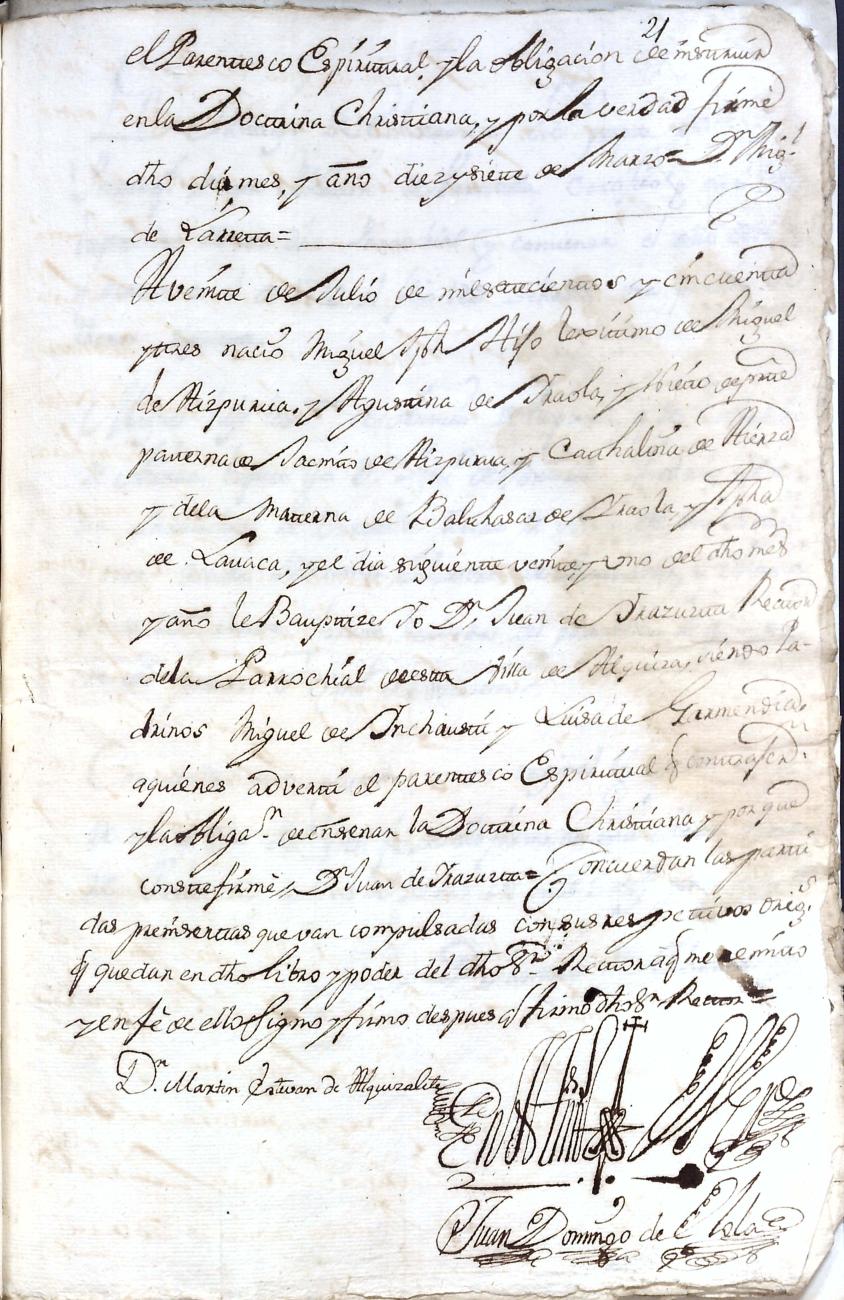 21
el Parentesco Espiritual, y la obligacion de instruir
en la Doctrina Christiana, y por la verdad firmè
dho dia, mes, y año diez y siete de Marzo= Dn Migl
de Larreta=
A veinte de Julio de mil setecientos y cincuenta
y tres naciò Miguel Jph Hijo lexitimo de Miguel
de Aizpurua, y Agustina de Iraola, y Nieto de pte
paterna de Jacinto de Aizpurua, y Cathalina de Hierza
y dela Materna de Balthasar de Iraola, y Jpha
de Lauaca, y el dia siguiente veinte y uno del dho mes
y año le Bauptize Yo Dn Juan de Irazuzta Rector
dela Parrochial de esta Villa de Alquiza, siendo Pa-
drinos Miguel de Inchausti y Luisa de Garmendia
aquienes adverti el parentesco Espiritual q contraxern
y la obligan. de enseñar la Doctrina Christiana y por que
conste firmè, Dn Juan de Irazuzta= Concuerdan las parti
das preinsertas que van compulsadas con sus respectivos orig.s
q quedan en dho libro y poder del dho Sr. Rector aq me remito
y en fè de ello signo y firmo despues q firmò dho Sr Rector=
Dn. Martin Estevan de Alquizalete
Juan Domingo de Elola